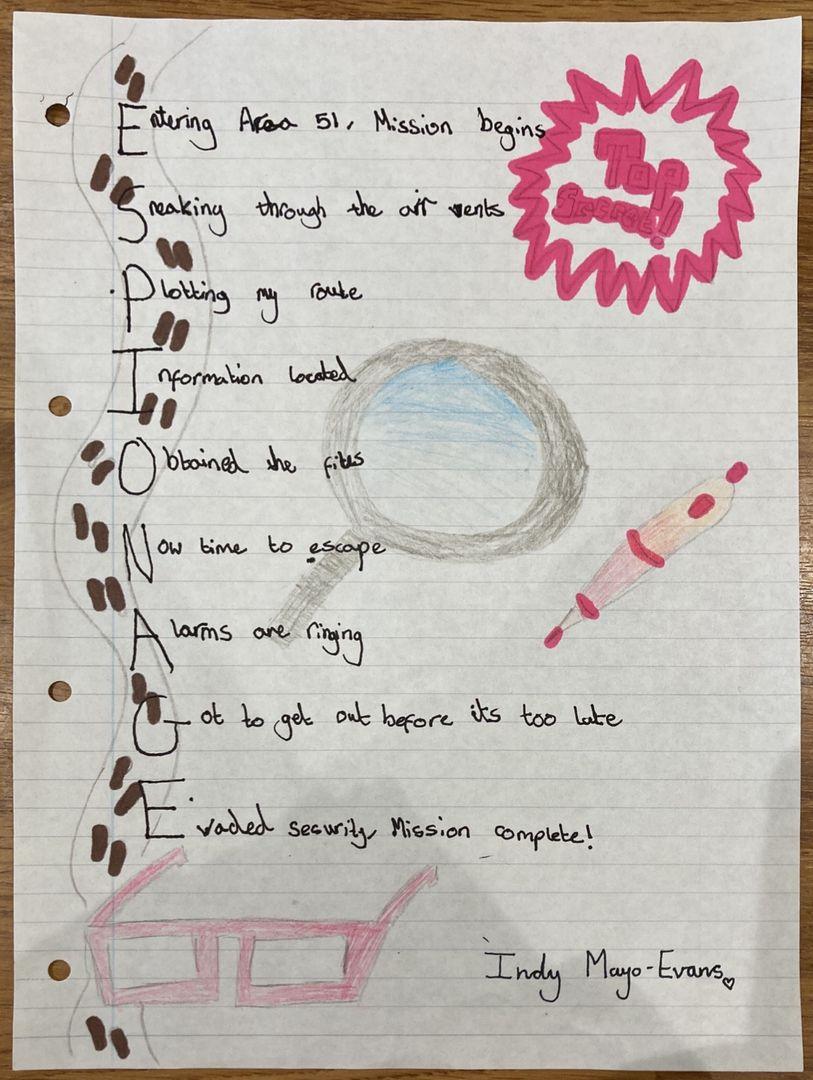 Entering Area 51, Mission begins
Top
Secret!!
Sneaking through the air vents
Plotting my route
Information located
Obtained the files
Now time to escape
Alarms are ringing
Got to get out before its too late
Evaded security, Mission complete!
Indy Mayo-Evans